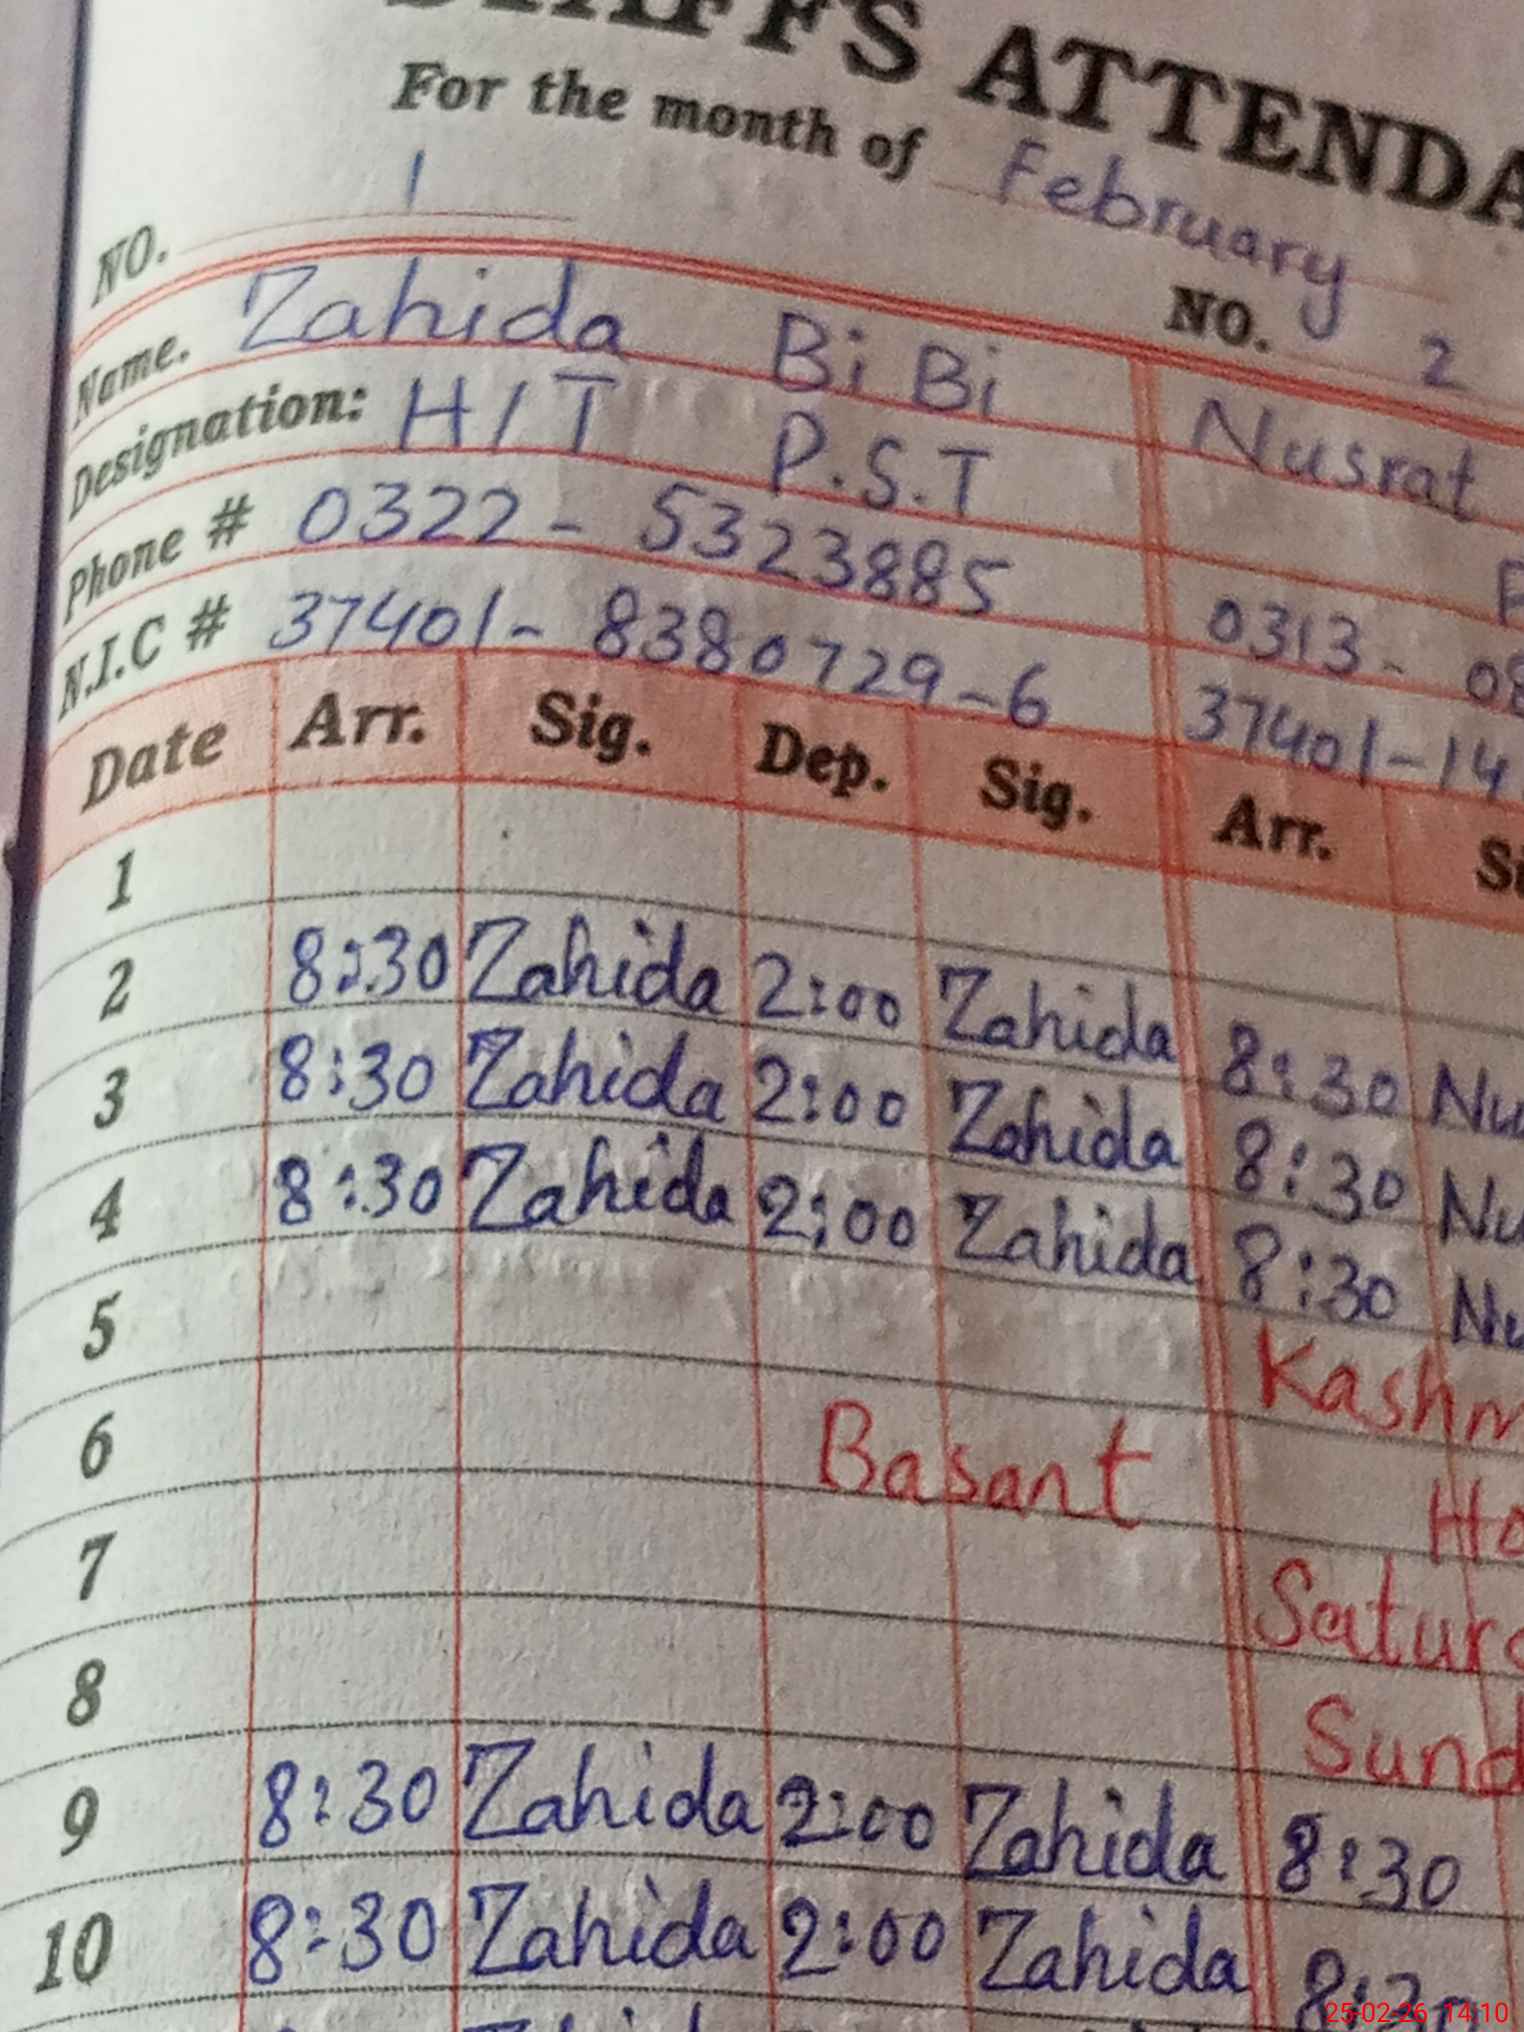 STAFFS ATTENDA
For the month of February
NO. 1 NO. 2
Name. Zahida Bi Bi Nusrat
Designation: H/T P.S.T P
Phone # 0322-5323885 0313-08
N.I.C # 37401-8380729-6 37401-14
Date Arr. Sig. Dep. Sig. Arr. Si
1
2 8:30 Zahida 2:00 Zahida 8:30 Nu
3 8:30 Zahida 2:00 Zahida 8:30 Nu
4 8:30 Zahida 2:00 Zahida 8:30 Nu
5 Kashm
6 Basant Ho
7 Satur
8 Sund
9 8:30 Zahida 2:00 Zahida 8:30
10 8:30 Zahida 2:00 Zahida 8:30
25-02-26 14:10